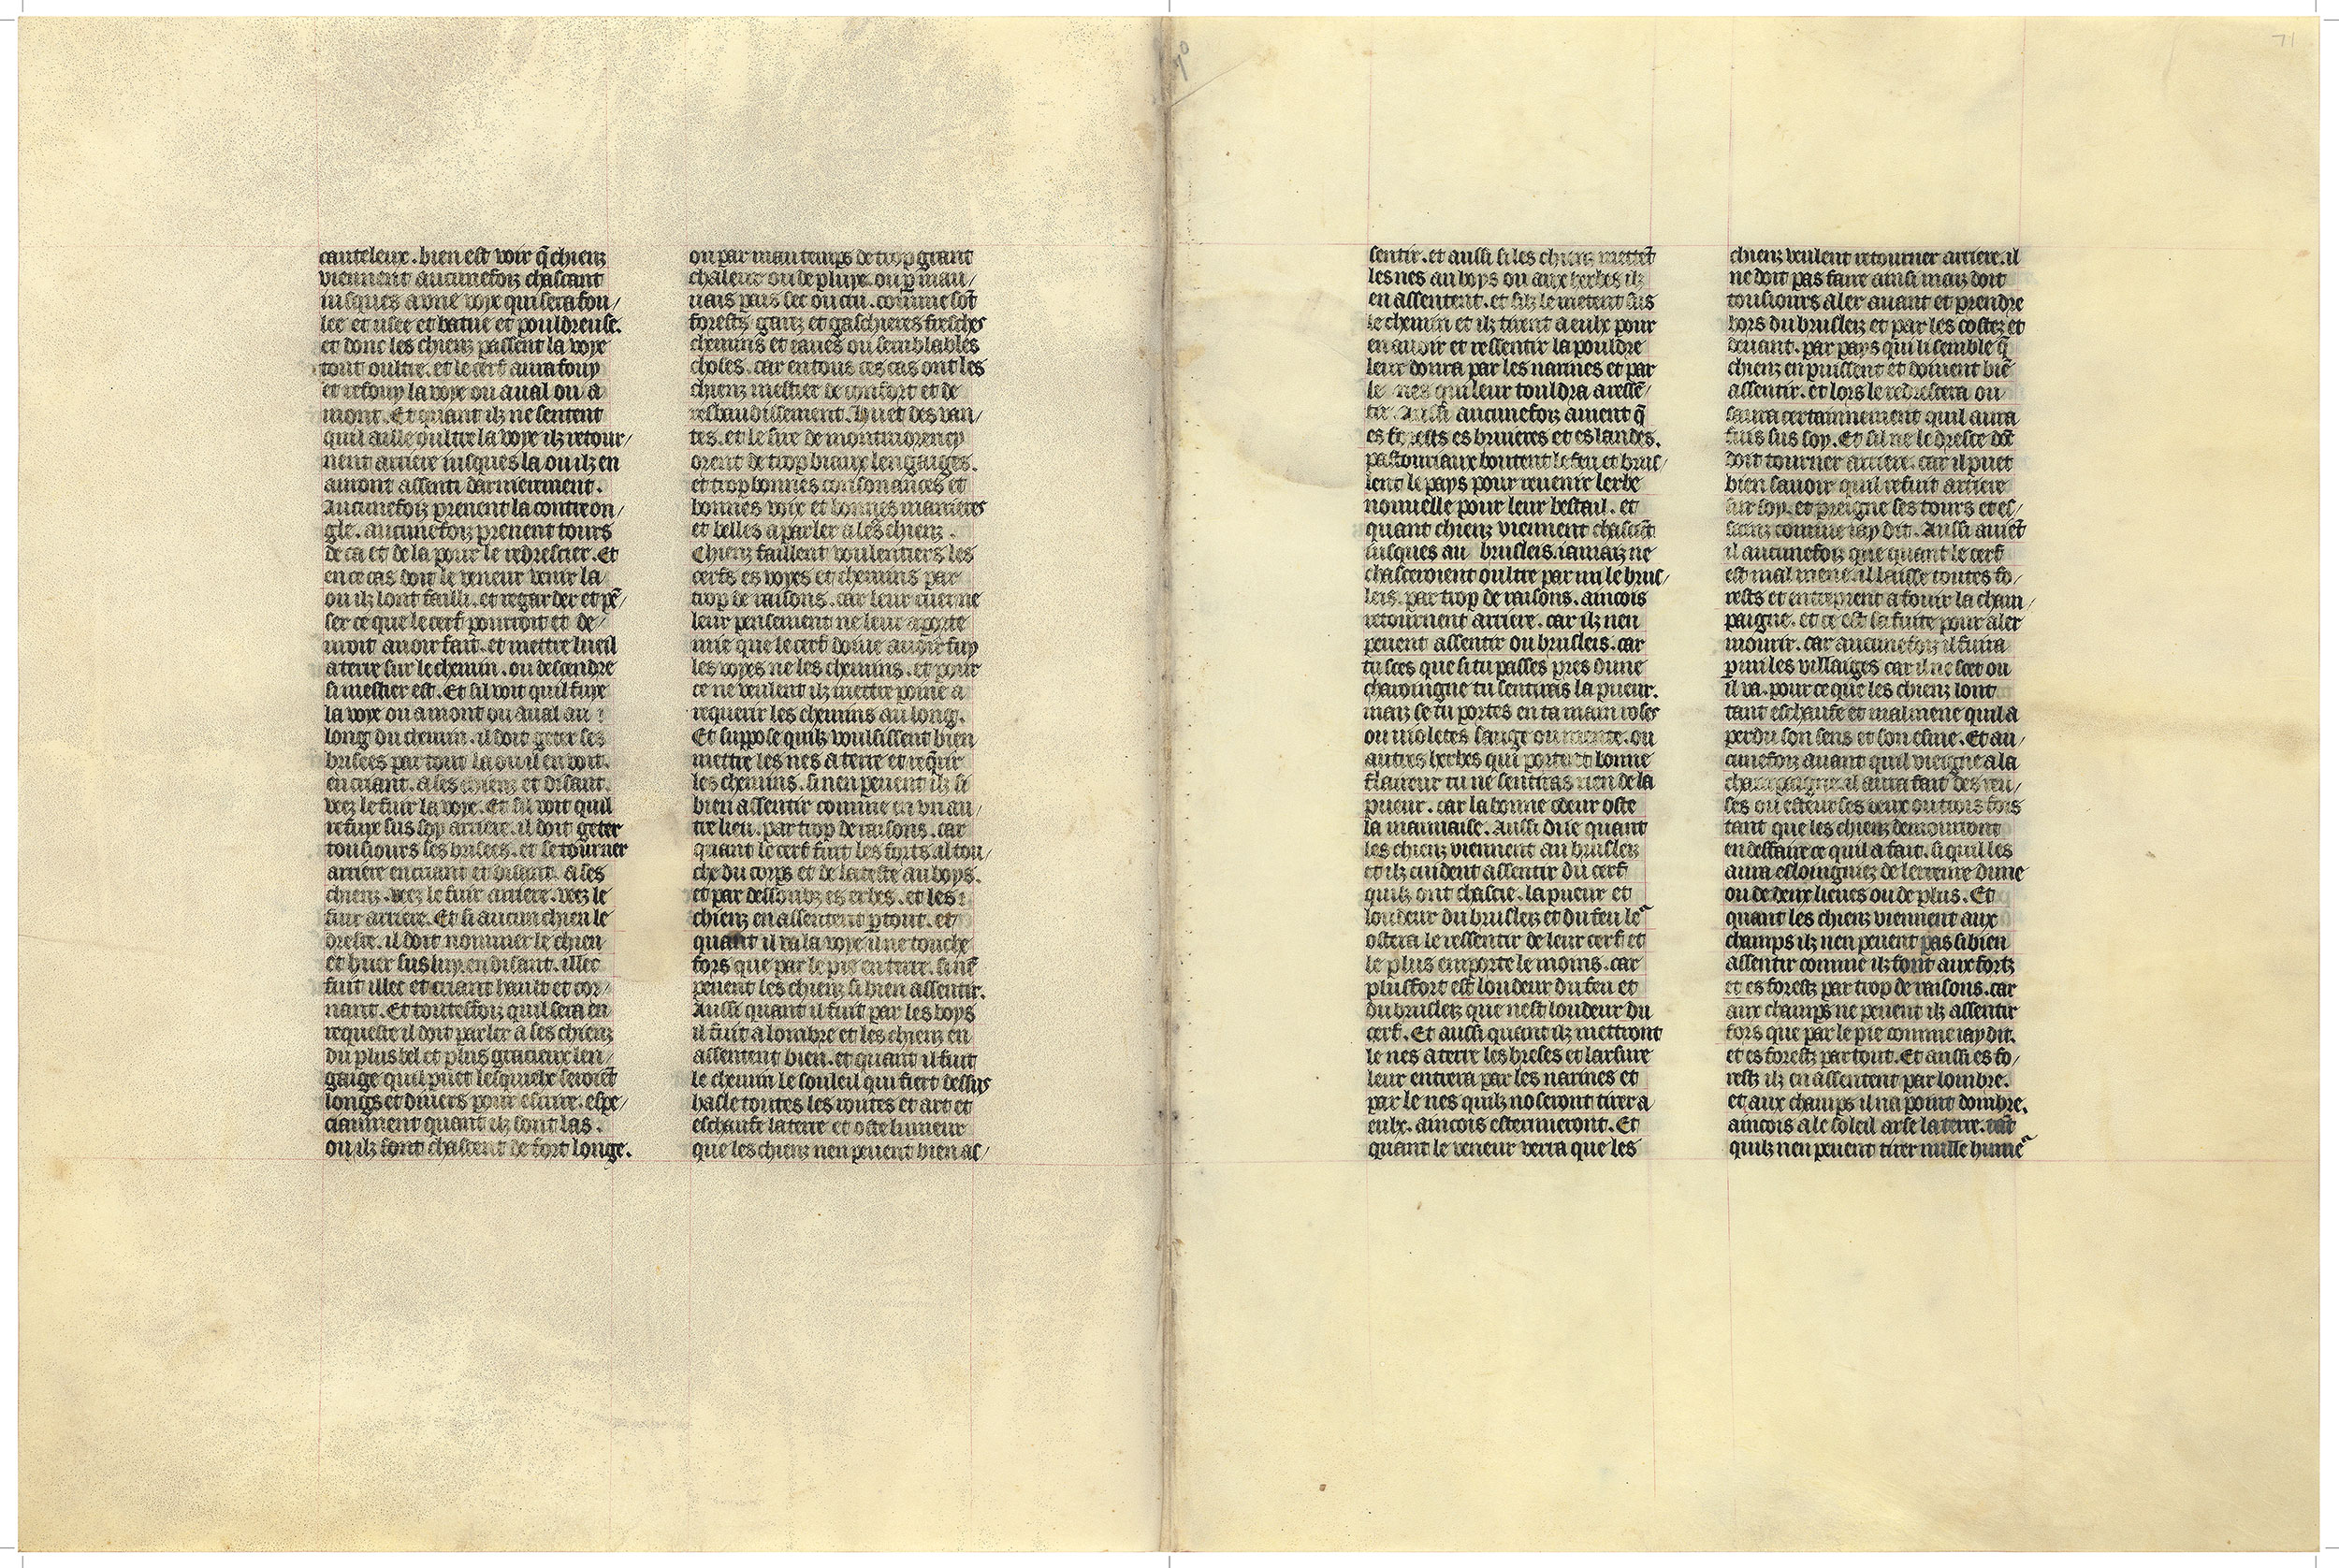 cauteleux . bien est voir q̃ chienz
viennent aucunefoiz chascant
iusques a vne voye qui sera fou/
lee et usee et batue et pouldreuse.
et donc les chienz passent la voye
tout oultre. et le cerf aura fouy
et refouy la voye ou aual ou a
mont. Et quant ilz ne sentent
quil aille oultre la voye ilz retour/
nent arriere iusques la ou ilz en
auront assenti darnierement.
Aucunefoiz prenent la contreon/
gle. aucunefoiz prenent tours
de ca et de la pour le redrescier. Et
en ce cas doit le veneur venir la
ou ilz lont failli. et regarder et pẽ/
ser ce que le cerf pourroit et de/
uroit auoir fait. et mettre lueil
a terre sur le chemin. ou descendre
si mestier est. Et sil voit quil fuye
la voye ou amont ou aual au
long du chemin. il doit geter ses
brisees par tout la ou il en voit.
en criant. a ses chienz et disant.
veez le fuir la voye. Et sil voit quil
refuye sus soy arriere. il doit geter
tousiours ses brisees. et se tourner
arriere en criant et disant. a ses
chienz. veez le fuir arriere. veez le
fuir arriere. Et si aucun chien le
dresse. il doit nommer le chien
et huer sus luy. en disant. illec
fuit illec et criant hault et cor/
nant. Et toutesfoiz quil sera en
requeste il doit parler a ses chienz
du plus bel et plus gracieux len/
gaige quil puet lesquielx seroiẽt
longs et diuers pour escrire. espe/
ciaument quant ilz sont las .
ou ilz sont chascent de fort longe.
ou par mau temps de trop grant
chaleur ou de pluye. ou p mau/
uais pais sec ou cru. comme sõt
forests garz et gaschieres fresches
chemins et raues ou semblables
choses. car en tous ces cas ont les
chienz mestier de confort et de
resbaudissement. Huet des van/
tes. et le sire de montmorency
orent de trop biaux lengaiges.
et trop bonnes consonances et
bonnes voix et bonnes manieres
et belles a parler a les chienz .
Chienz faillent voulentiers les
cerfs es voyes et chemins par
trop de raisons. car leur cuer ne
leur pensement ne leur aporte
mie que le cerf doiue auoir fuy
les voyes ne les chemins. et pour
ce ne veulent ilz mettre poine a
requerir les chemins au long.
Et suppose quilz voulsissent bien
mettre les nes a terre et reqrir
les chemins. si nen peuent ilz si
bien assentir comme en vn au/
tre lieu. par trop de raisons. car
quant le cerf fuit les forts. il tou/
che du corps et de la teste au boys.
et par dessoubz es erbes. et les
chienz en assentent p tout. et
quant il va la voye il ne touche
fors que par le pie en terre. si nẽ
peuent les chienz si bien assentir.
Aussi quant il fuit par les boys
il fuit a lombre et les chienz en
assentent bien. et quant il fuit
le chemin le souleil qui fiert dessus
hasle toutes les routes et art et
eschaufe la terre et oste lumeur
que les chienz nen peuent bien as/
sentir. et aussi si les chienz mettẽt
les nes au boys ou aux herbes ilz
en assentent. et silz le metent sus
le chemin et ilz tirent a eulx pour
en auoir et ressentir la pouldre
leur donra par les narines et par
le nes qui leur touldra a ressẽ/
tir. Aussi aucunefoiz auient q̃
es forests es bruieres et es landes.
pastouriaux boutent le feu et brus/
lent le pays pour reuenir lerbe
nouuelle pour leur bestail. et
quant chienz viennent chascãt
iusques au brusleis. iamaiz ne
chasceroient oultre par mi le brus/
leis. par trop de raisons. aincois
retournent arriere. car ilz nen
peuent assentir ou brusleis. car
tu sces que si tu passes pres dune
charoingne tu sentiras la pueur.
maiz se tu portes en ta main roses
ou violetes sauge ou mente. ou
autres herbes qui portent bonne
flaueur tu ne sentiras rien de la
pueur. car la bonne odeur oste
la mauuaise. Aussi die quant
les chienz viennent au brusleiz
et ilz cuident assentir du cerf
quilz ont chascie. la pueur et
loudeur du brusleiz et du feu le
ostera le ressentir de leur cerf et
le plus emporte le moins. car
plus fort est loudeur du feu et
du brusleiz que nest loudeur du
cerf. Et aussi quant ilz mettront
le nes a terre les breses et larsure
leur entrera par les narines et
par le nes quilz noseront tirer a
eulx. aincois esternueront. Et
quant le veneur verra que les
chienz veulent retourner arriere. il
ne doit pas faire ainsi maiz doit
tousiours aler auant et prendre
hors du brusleiz et par les costez et
deuant. par pays qui li semble q̃
chienz en puissent et doiuent biẽ
assentir. et lors le redrescera ou
saura certainnement quil aura
fuis sus soy. Et sil ne le dresce dõc
doit tourner arriere. car il puet
bien sauoir quil refuit arriere
sur soy. et preigne ses tours et es/
sainz comme iay dit. Aussi auiẽt
il aucunefoiz que quant le cerf
est mal mene. il laisse toutes fo/
rests et entreprent a fouir la cham/
paigne. et ce est sa fuite pour aler
mourir. car aucunefoiz il fuira
p mi les villaiges car il ne scet ou
il va. pour ce que les chienz lont
tant eschaufe et mal mene quil a
perdu son sens et son esme. Et au/
cunefoiz auant quil vieigne a la
champaigne. il aura fait des ru/
ses ou esteurses deux ou trois fois
tant que les chienz demourront
en deffaire ce quil a fait. si quil les
aura esloingniez de lerreure dune
ou de deux lieues ou de plus. Et
quant les chienz viennent aux
champs ilz nen peuent pas si bien
assentir comme ilz font aux forts
et es forestz par trop de raisons. car
aux champs ne peuent ilz assentir
fors que par le pie comme iay dit.
et es forestz par tout. Et aussi es fo/
restz ilz en assentent par lombre.
et aux champs il na point dombre.
aincois a le soleil arse la terre.
quilz nen peuent tirer nulle humẽ
70
71